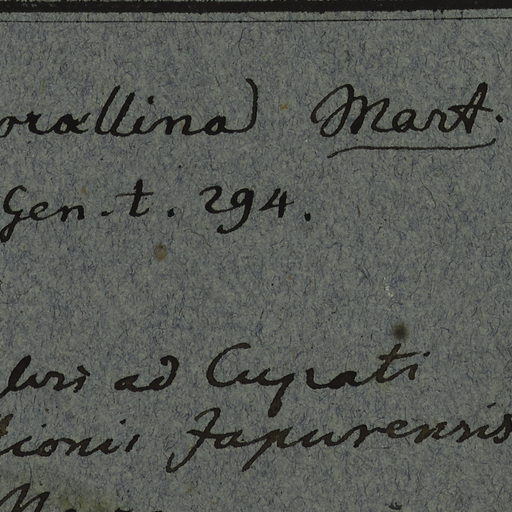 orallina) Mart.
Gen. t. 294.
lvis ad Cupati
tionis Japurensis